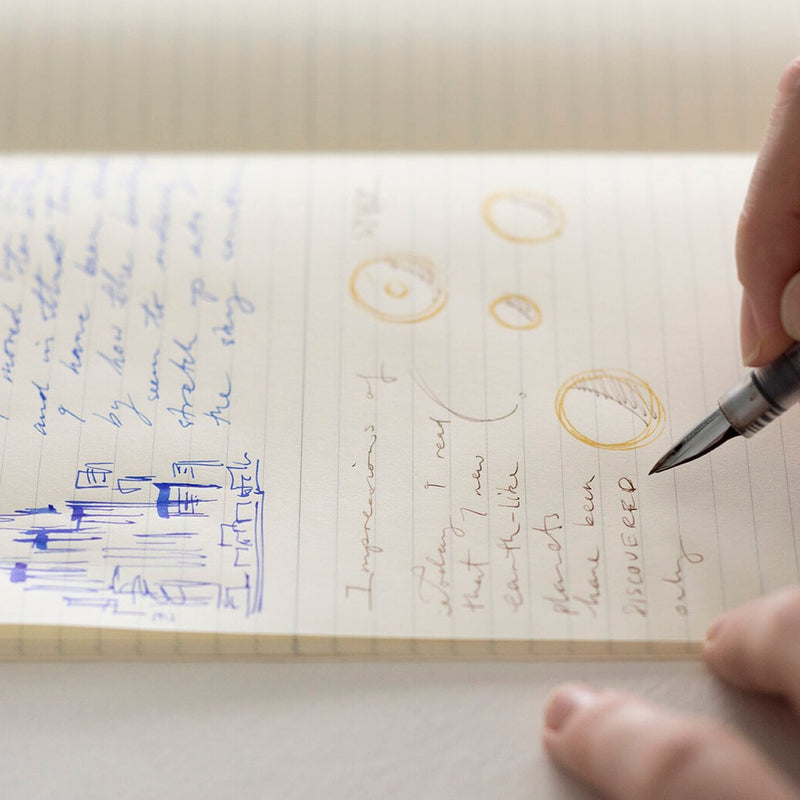 moved
and in that
I have been
by how the
seem to
stretch up
the sky
Impressions of
Today I read
that 7 new
earth-like
planets
have been
DISCOVERED
only